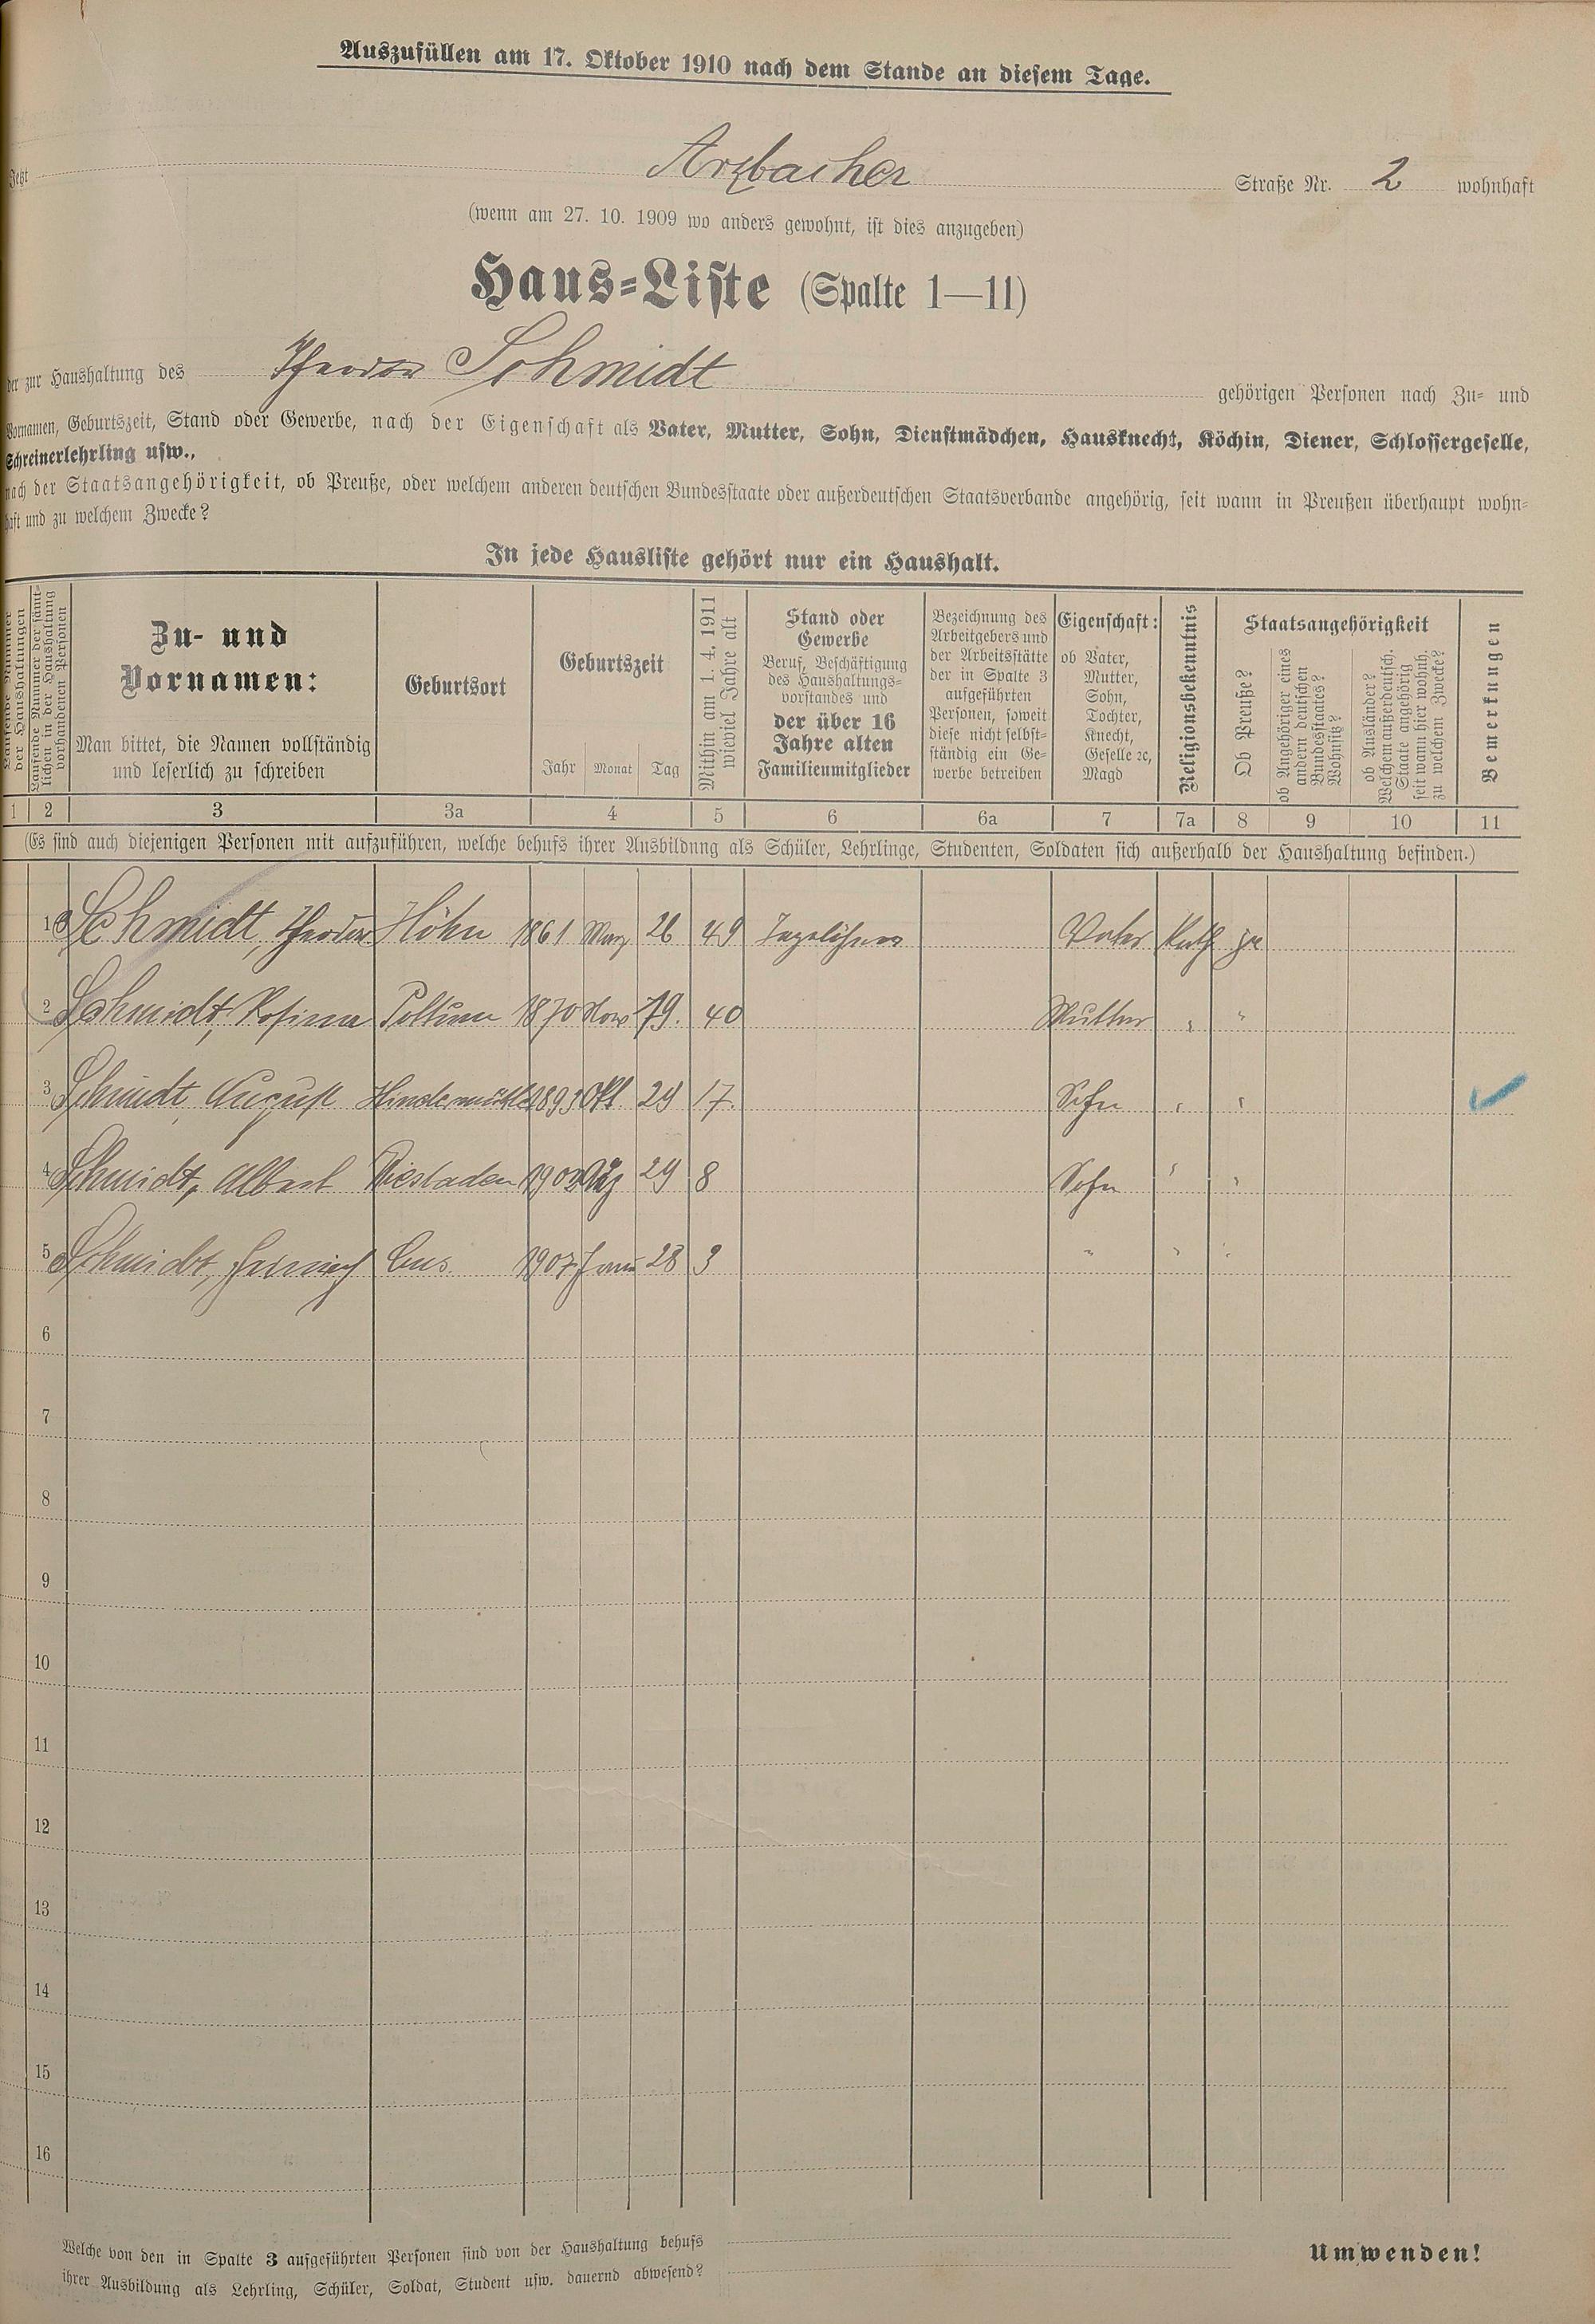 Auszufüllen am 17. Oktober 1910 nach dem Stande an diesem Tage.
Jetzt Arzbacher Straße Nr. 2 wohnhaft
(wenn am 27. 10. 1909 wo anders gewohnt, ist dies anzugeben)
Haus-Liste (Spalte 1—11)
der zur Haushaltung des Theodor Schmidt gehörigen Personen nach Zu- und
Vornamen, Geburtszeit, Stand oder Gewerbe, nach der Eigenschaft als Vater, Mutter, Sohn, Dienstmädchen, Hausknecht, Köchin, Diener, Schlossergeselle,
Schreinerlehrling usw.,
nach der Staatsangehörigkeit, ob Preuße, oder welchem anderen deutschen Bundesstaate oder außerdeutschen Staatsverbande angehörig, seit wann in Preußen überhaupt wohn-
haft und zu welchem Zwecke?
In jede Hausliste gehört nur ein Haushalt.
Laufende Nummer
der Haushaltungen
Laufende Nummer der sämt-
lichen in der Haushaltung
vorhandenen Personen
Zu- und
Vornamen:
Man bittet, die Namen vollständig
und leserlich zu schreiben
Geburtsort
Geburtszeit
Jahr Monat Tag
Mithin am 1. 4. 1911
wieviel Jahre alt
Stand oder
Gewerbe
Beruf, Beschäftigung
des Haushaltungs-
vorstandes und
der über 16
Jahre alten
Familienmitglieder
Bezeichnung des
Arbeitgebers und
der Arbeitsstätte
der in Spalte 3
aufgeführten
Personen, soweit
diese nicht selbst-
ständig ein Ge-
werbe betreiben
Eigenschaft:
ob Vater,
Mutter,
Sohn,
Tochter,
Knecht,
Geselle ec,
Magd
Religionsbekenntnis
Staatsangehörigkeit
Ob Preuße?
ob Angehöriger eines
andern deutschen
Bundesstaates?
Wohnsitz?
ob Ausländer?
Welchem außerdeutsch.
Staate angehörig
seit wann hier wohnh.
zu welchem Zwecke?
Bemerkungen
1 2 3 3a 4 5 6 6a 7 7a 8 9 10 11
(Es sind auch diejenigen Personen mit aufzuführen, welche behufs ihrer Ausbildung als Schüler, Lehrlinge, Studenten, Soldaten sich außerhalb der Haushaltung befinden.)
1 Schmidt, Theodor Höhn 1861 März 26 49 Tagelöhner Vater Kath ja
2 Schmidt, Rosina 1870 Nov 19. 40 Mutter " "
3 Schmidt, August 1893 Okt. 29 17. Sohn " "
4 Schmidt, Albert Wiesbaden 29 8 Sohn " "
5 Schmidt, Heinrich Ems 1907 Janu 28 3 " " "
6
7
8
9
10
11
12
13
14
15
16
Welche von den in Spalte 3 aufgeführten Personen sind von der Haushaltung behufs
ihrer Ausbildung als Lehrling, Schüler, Soldat, Student usw. dauernd abwesend?
Umwenden!